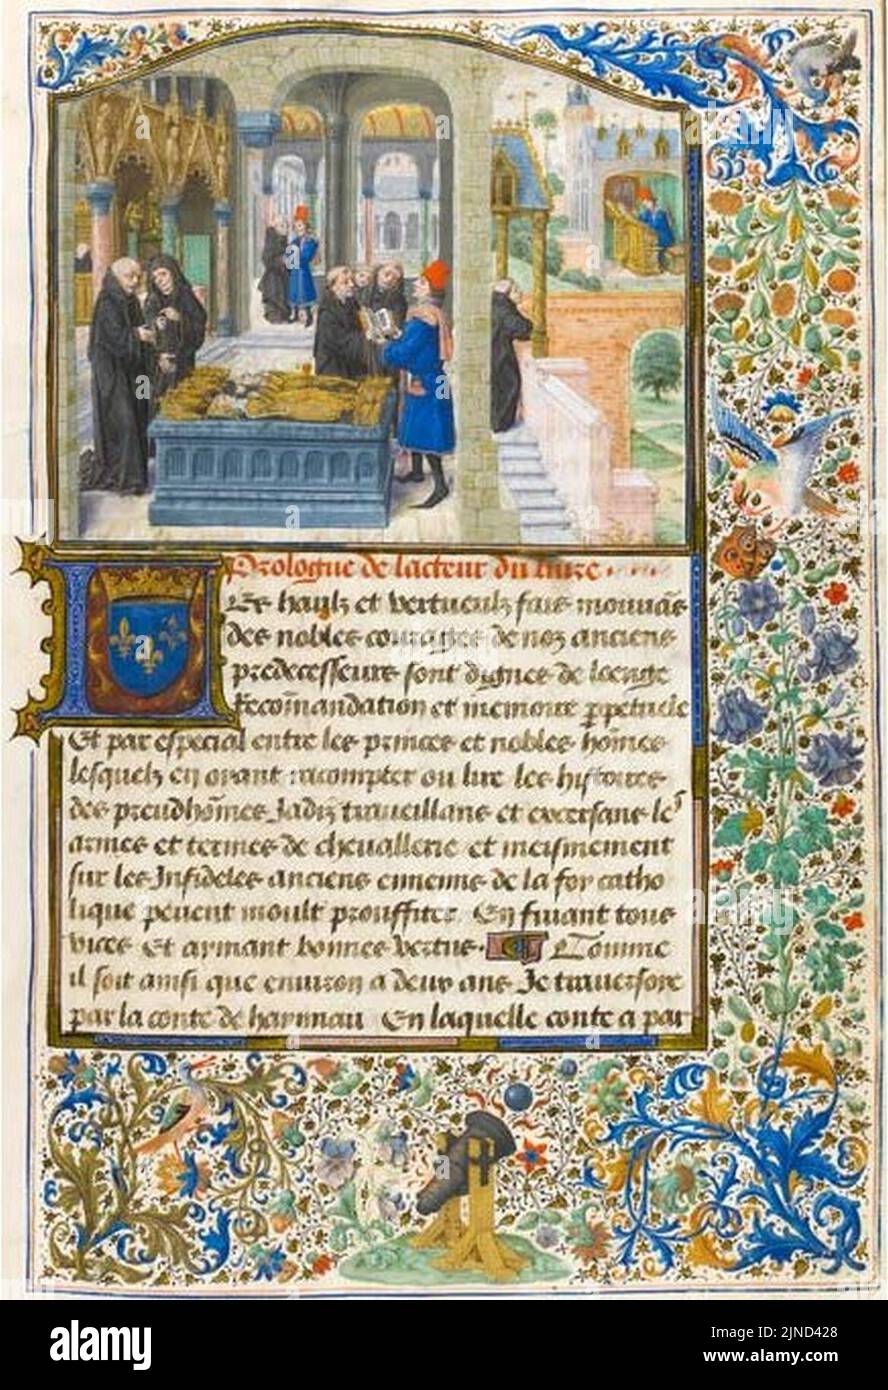 Prologue de lacteur du liure
Les haulz et vertueulz fais mouuās
des nobles courages de noz anciens
predecesseurs sont dignes de loenge
Recōmandation et memoire ꝑpetuele
Et par especial entre les princes et nobles hōmes
lesquelz en oyant racompter ou lire les histoires
des preudhōmes Jadiz traueillans et excersans les
armes et termes de cheuallerie et meismement
sur les Infideles anciens ennemis de la foy catho
lique peuent moult prouffiter En fuiant tous
vices Et aymant bonnes vertus Comme
il soit ainsi que enuiron a deux ans Je trauersoye
par la conte de haynnau En laquelle conte a par
alamy
Image ID: 2JND428
www.alamy.com